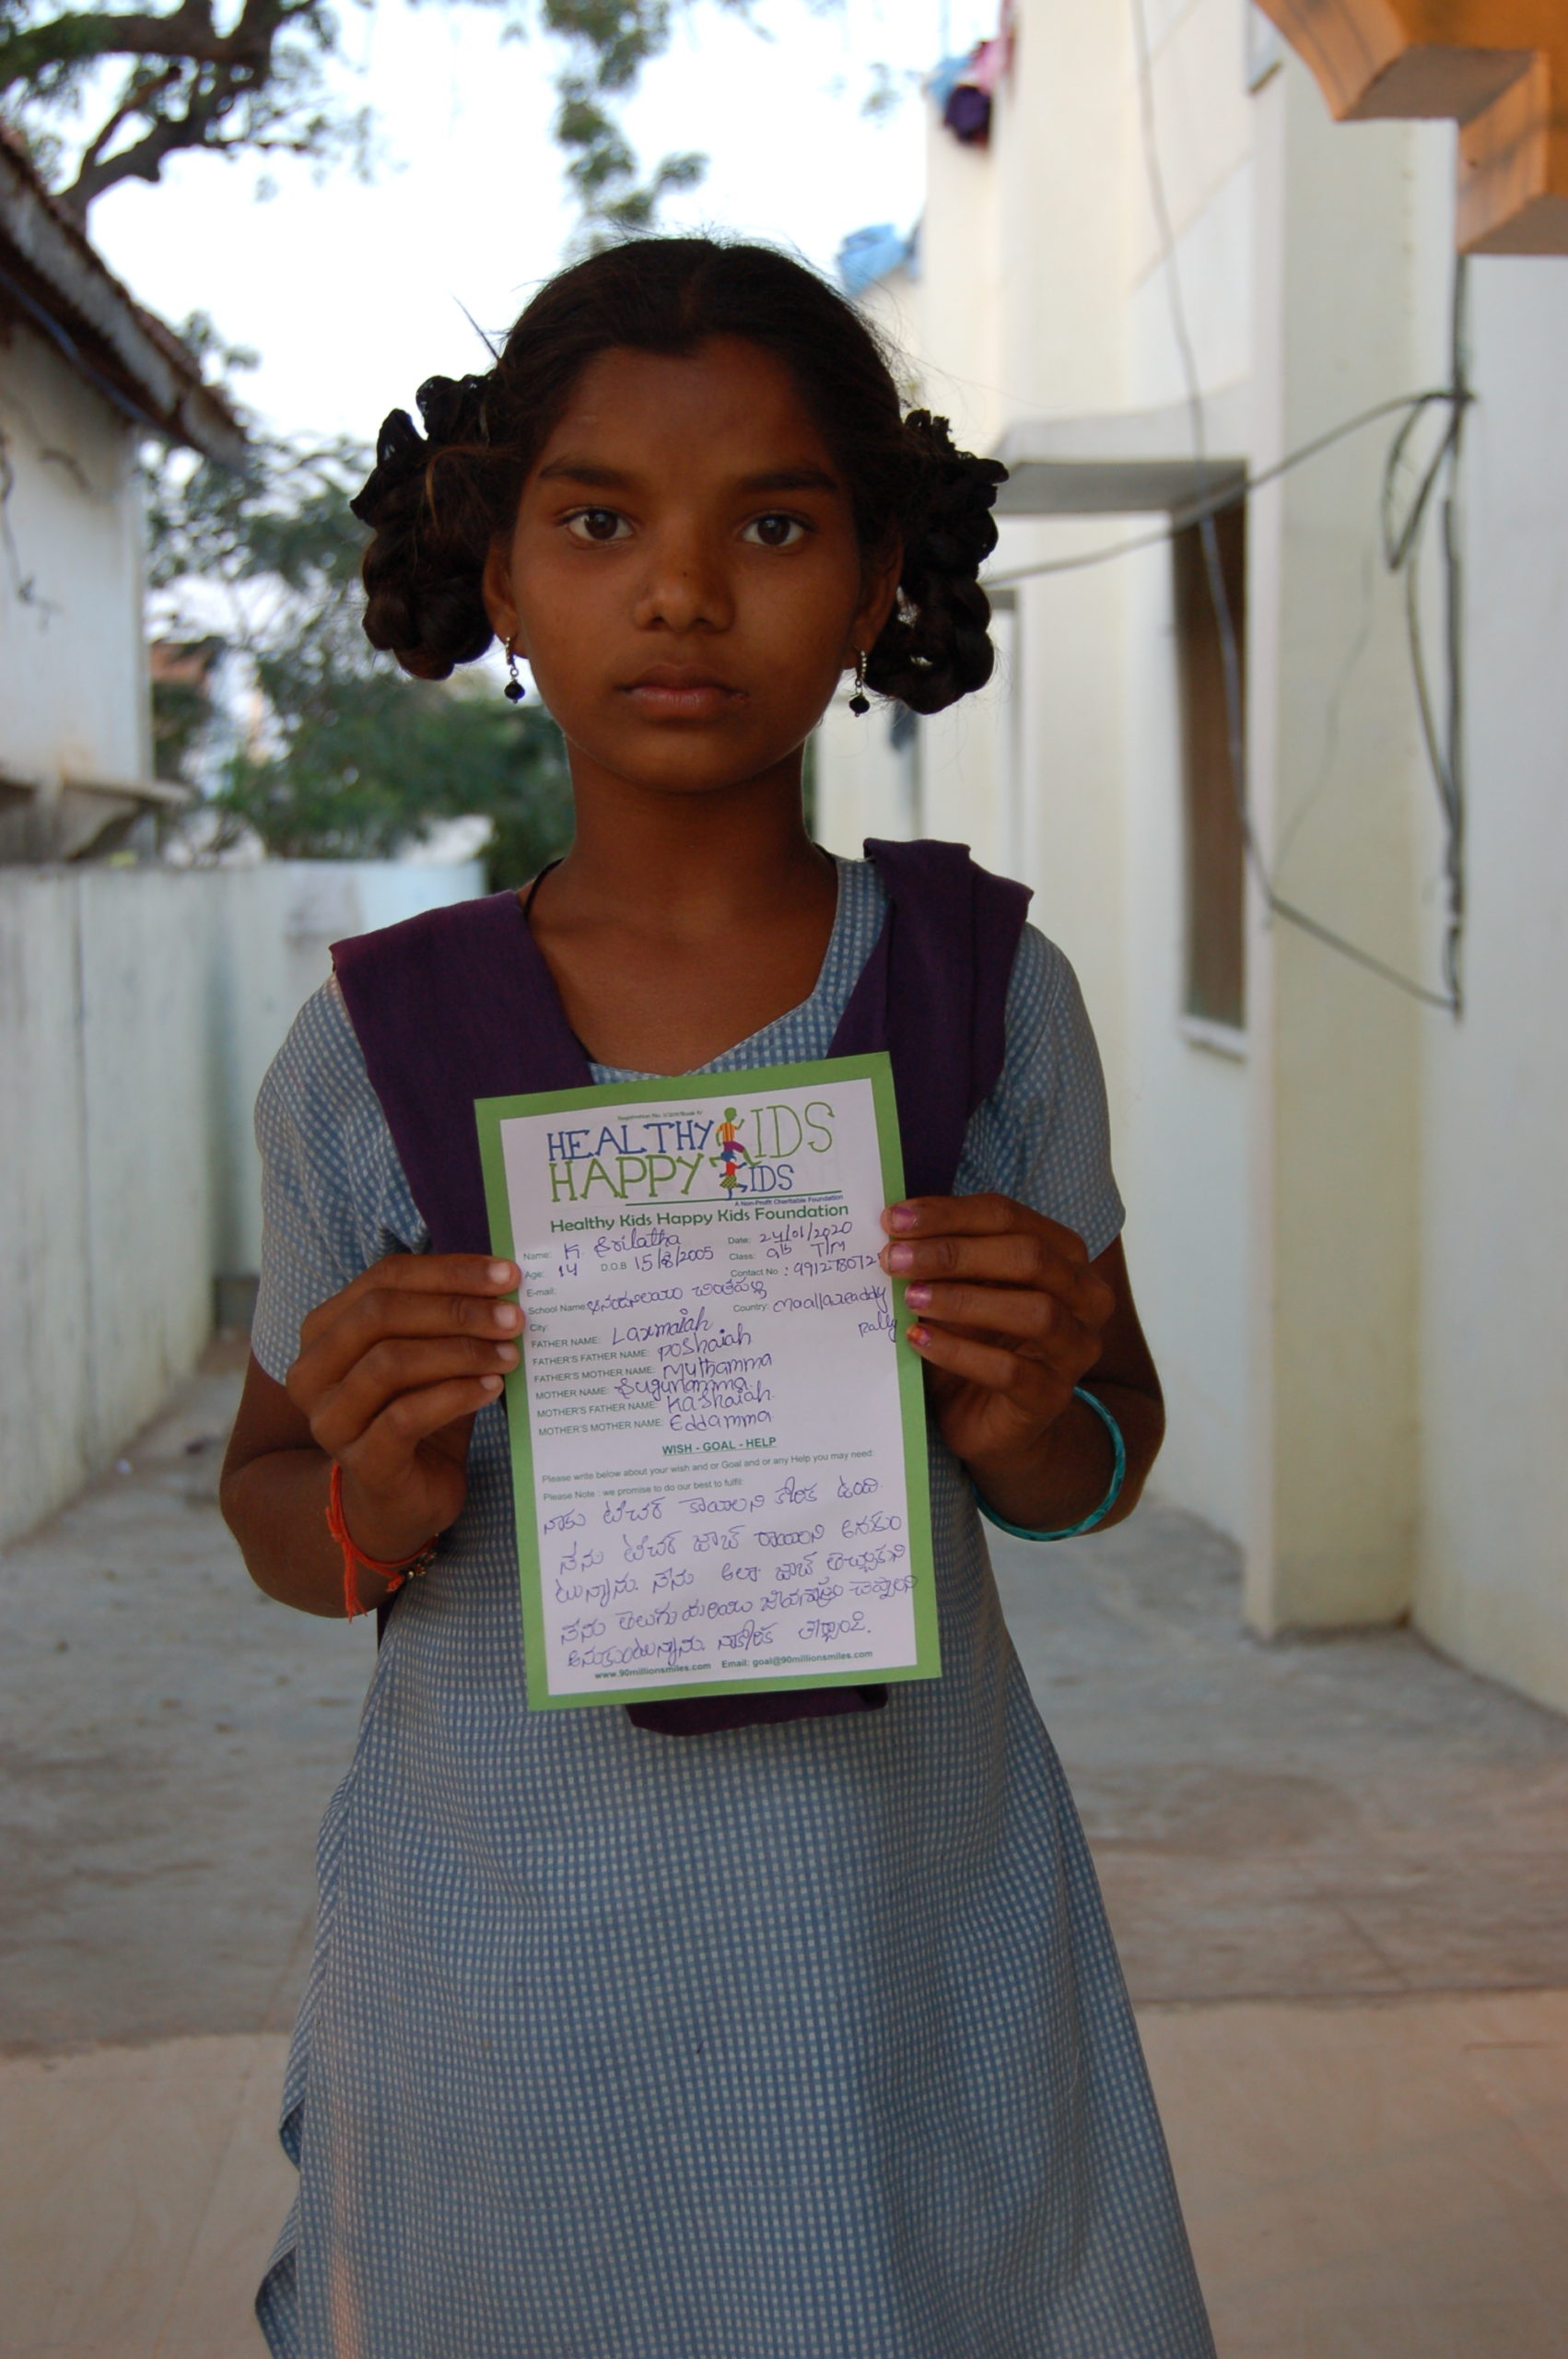 HEALTHY KIDS
HAPPY KIDS
A Non-Profit Charitable Foundation
Healthy Kids Happy Kids Foundation
Name: K. Srilatha Date: 24/01/2020
Age: 14 D.O.B 15/8/2005 Class: 9th T/M
E-mail: Contact No : 99127807
School Name:
City: Country: Maallareaddy
pally
FATHER NAME: Laxmaiah
FATHER'S FATHER NAME: poshaiah
FATHER'S MOTHER NAME: Muthamma
MOTHER NAME: Sugunamma
MOTHER'S FATHER NAME: Kashaiah
MOTHER'S MOTHER NAME: Eddamma
WISH - GOAL - HELP
Please write below about your wish and or Goal and or any Help you may need:
Please Note : we promise to do our best to fulfil:
నాకు టీచర్ కావాలని కోరిక ఉంది.
నేను టీచర్ జాబ్ అనుకుం
టున్నాను. నేను అలా జాబ్ తెచ్చుకుని
నేను తెలుగు మరియు జీవశాస్త్రం చెప్పాలని
అనుకుంటున్నాను. నాకోరిక
www.90millionsmiles.com Email: goal@90millionsmiles.com